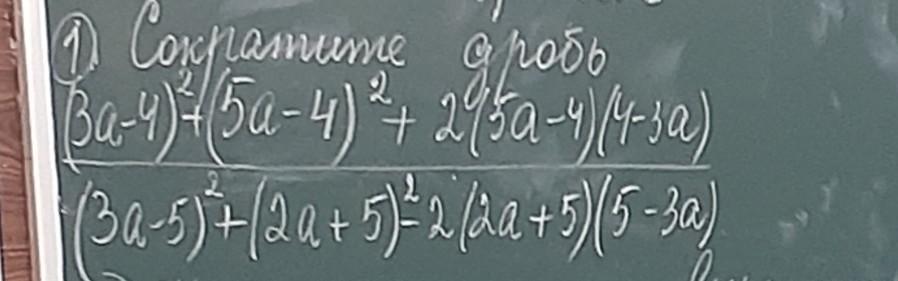 1) Сократите дробь
(3a-4)²+(5a-4)²+2(5a-4)(4-3a)
(3a-5)²+(2a+5)²-2(2a+5)(5-3a)